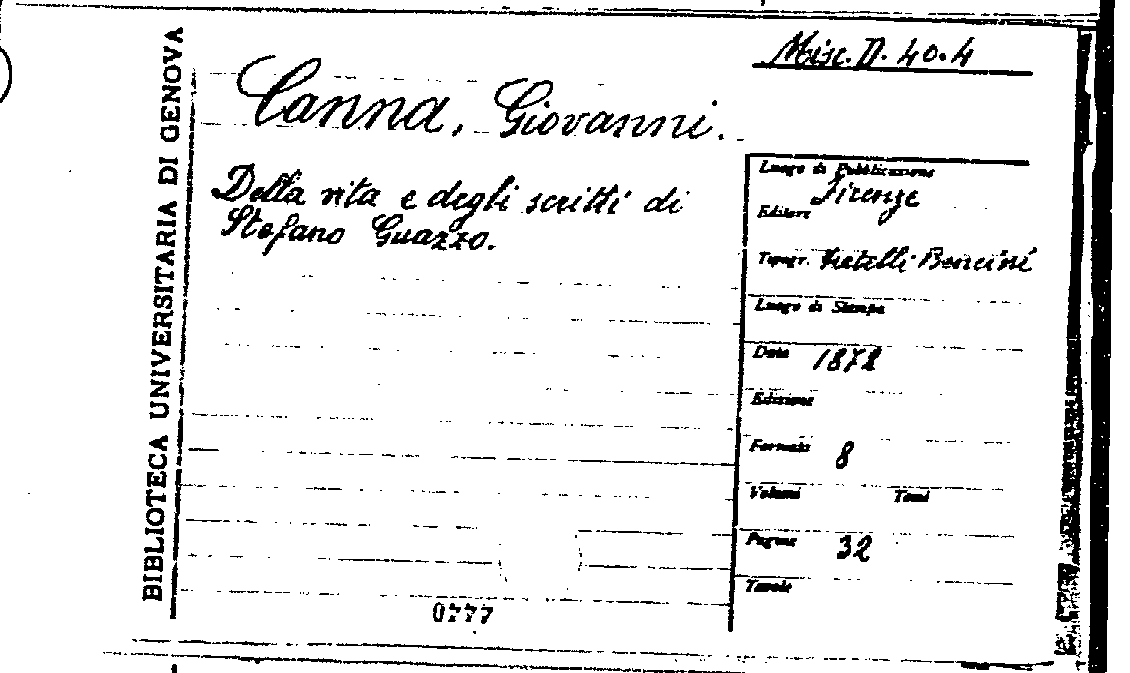 BIBLIOTECA UNIVERSITARIA DI GENOVA
Misc. D. 40.4
Canna, Giovanni.
Della vita e degli scritti di
Stefano Guazzo.
Luogo di Pubblicazione
Firenze
Editore
Tipogr. Fratelli Bencini
Luogo di Stampa
Data 1872
Edizione
Formato 8
Volumi Tomi
Pagine 32
Tavole
0777